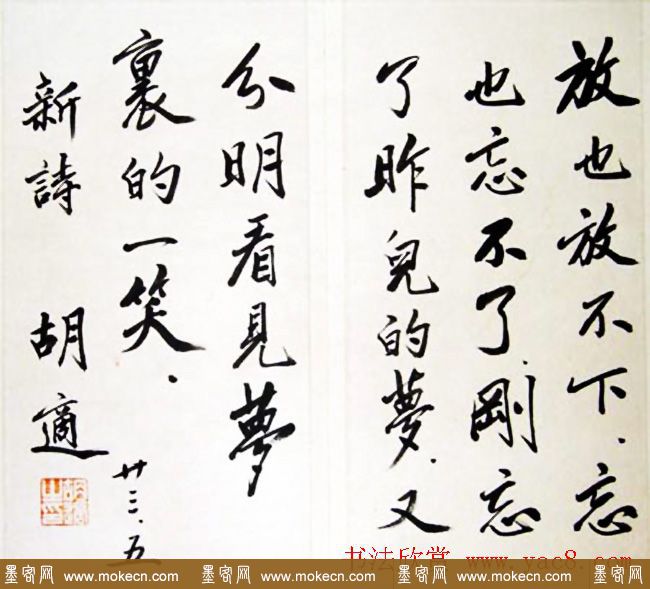 放也放不下、忘
也忘不了、剛忘
了昨兒的夢、又
分明看見夢
裏的一笑、
廿三、五
新詩 胡適
书法欣赏 www.yac8.com
墨客网 www.mokecn.com 墨客网 www.mokecn.com 墨客网 www.mokecn.com